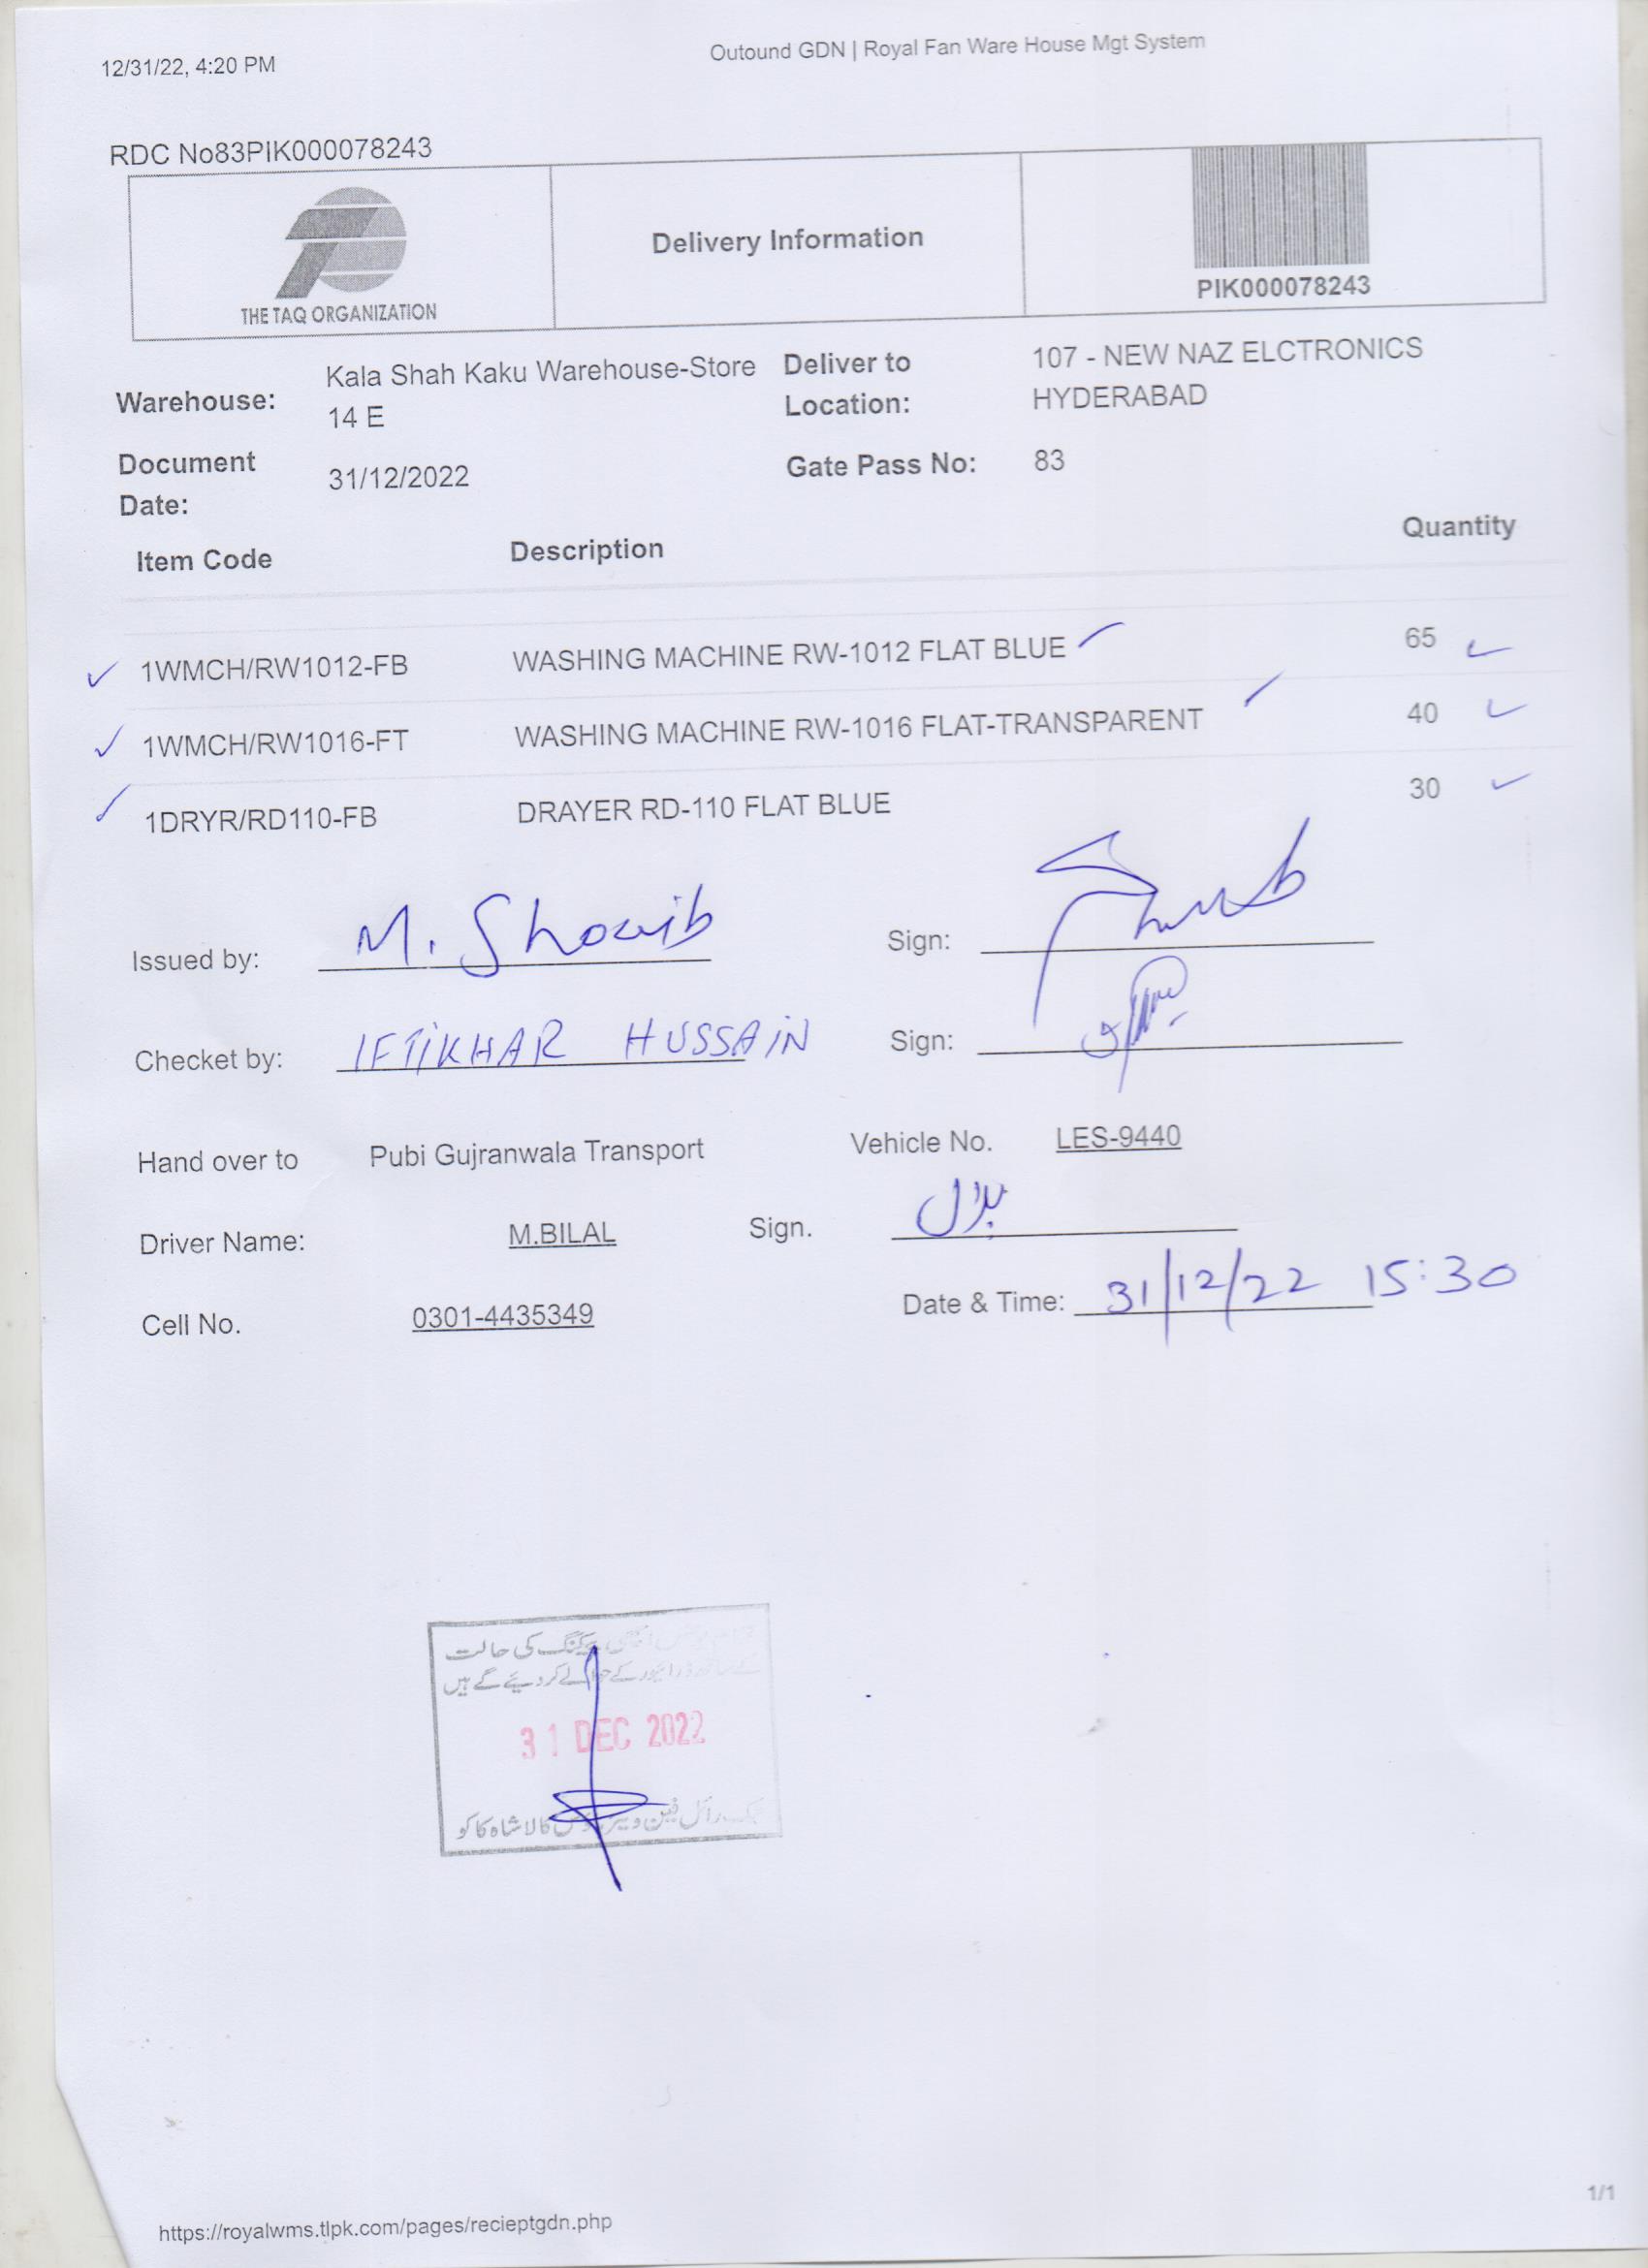 12/31/22, 4:20 PM
Outound GDN | Royal Fan Ware House Mgt System
RDC No83PIK000078243
THE TAQ ORGANIZATION
Delivery Information
PIK000078243
Warehouse: Kala Shah Kaku Warehouse-Store 14 E
Deliver to Location: 107 - NEW NAZ ELCTRONICS HYDERABAD
Document Date: 31/12/2022
Gate Pass No: 83
Item Code Description Quantity
1WMCH/RW1012-FB WASHING MACHINE RW-1012 FLAT BLUE 65
1WMCH/RW1016-FT WASHING MACHINE RW-1016 FLAT-TRANSPARENT 40
1DRYR/RD110-FB DRAYER RD-110 FLAT BLUE 30
Issued by: M. Shoaib Sign:
Checket by: IFTIKHAR HUSSAIN Sign:
Hand over to Pubi Gujranwala Transport Vehicle No. LES-9440
Driver Name: M.BILAL Sign. بلال
Cell No. 0301-4435349 Date & Time: 31/12/22 15:30
پیکنگ کی حالت
کے حوالے کر دیئے گے ہیں
31 DEC 2022
رائل فین ویئر ہاؤس کالا شاہ کاکو
https://royalwms.tlpk.com/pages/recieptgdn.php
1/1